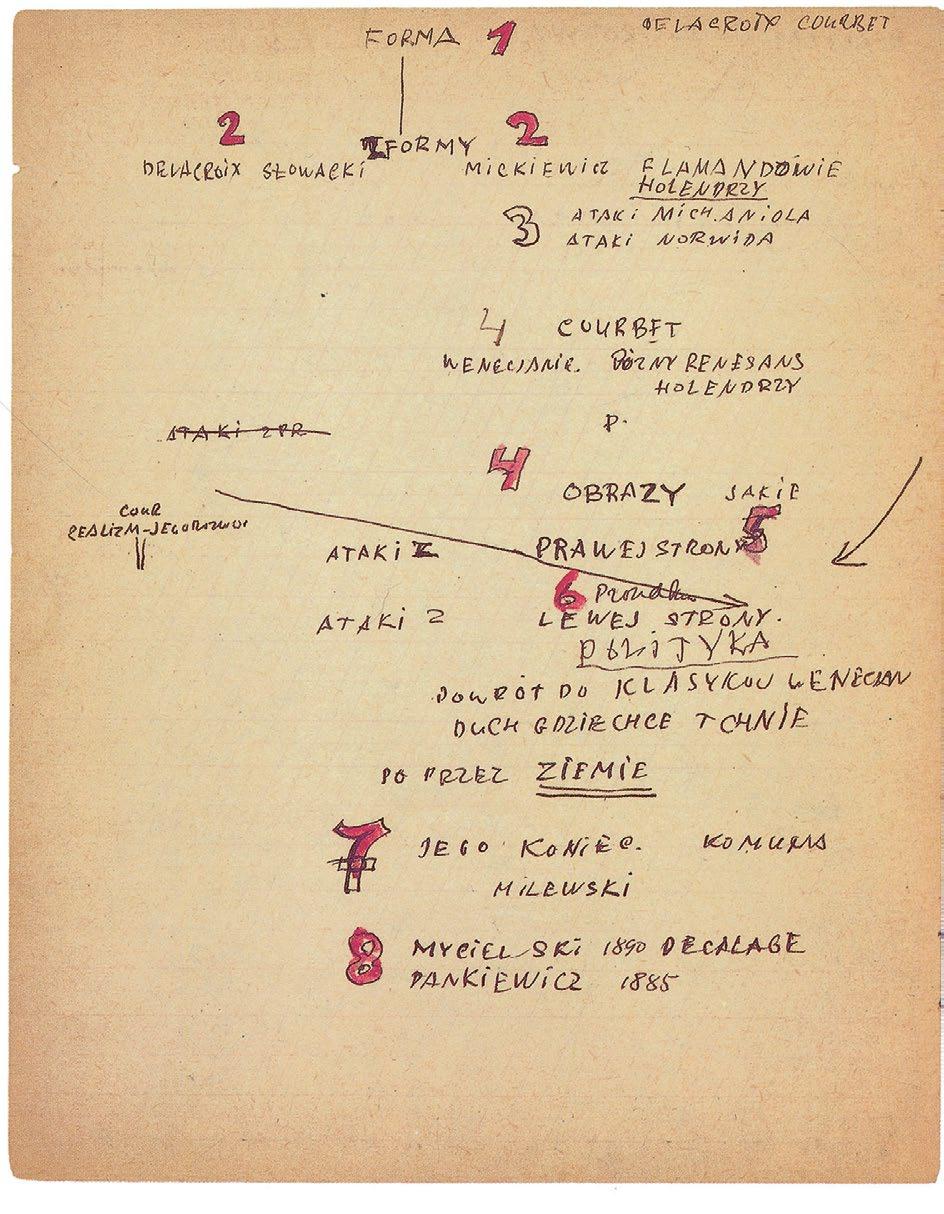 DELACROIX COURBET
FORMA 1
2 2
FORMY
DELACROIX SŁOWACKI MICKIEWICZ FLAMANDOWIE
HOLENDRZY
3 ATAKI MICH. ANIOLA
ATAKI NORWIDA
4 COURBET
WENECJANIE. PÓZNY RENESANS
HOLENDRZY
P.
ATAKI Z PR
4
OBRAZY JAKIE
COUR
REALIZM-JEGO ROZWOJ
5
ATAKI Z PRAWEJ STRONY
6 Proudhon
ATAKI Z LEWEJ STRONY.
POLITYKA
POWRÓT DO KLASYKOW WENECJAN
DUCH GDZIE CHCE TCHNIE
PO PRZEZ ZIEMIE
7 JEGO KONIEC. KOMUNA
MILEWSKI
8 MYCIELSKI 1890 DECALAGE
DANKIEWICZ 1885